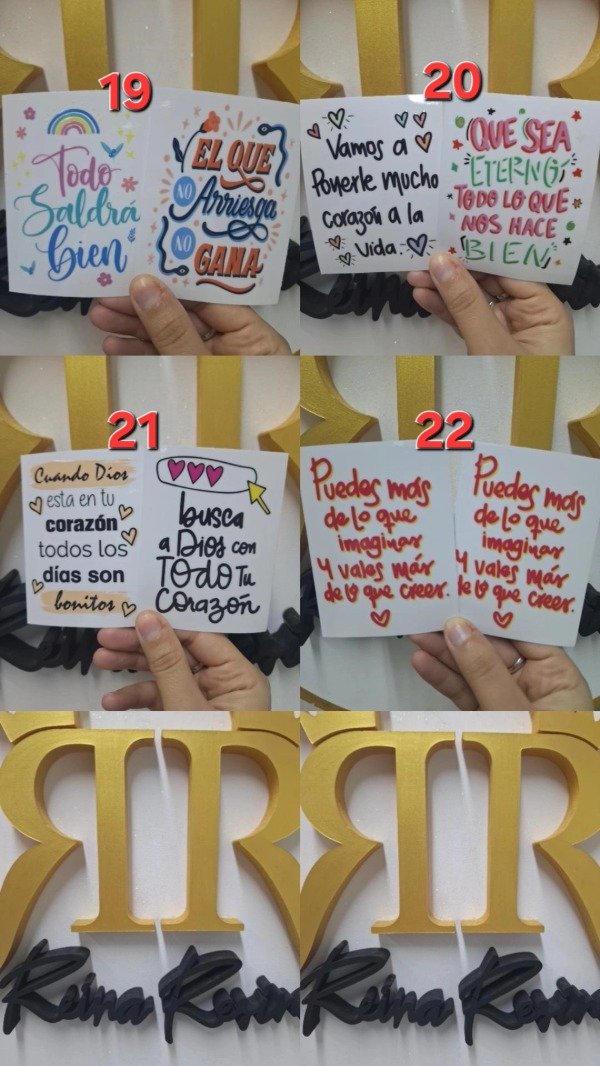 19
Todo
Saldrá
bien
EL QUE
NO Arriesga
NO GANA
20
Vamos a
Ponerle mucho
corazón a la
vida.
QUE SEA
ETERNO
TODO LO QUE
NOS HACE
BIEN
21
Cuando Dios
esta en tu
corazón
todos los
días son
bonitos
busca
a Dios con
TODO Tu
Corazón
22
Puedes más
de lo que
imaginas
y vales más
de lo que crees.
Puedes más
de lo que
imaginas
y vales más
de lo que crees.
Reina
Reina